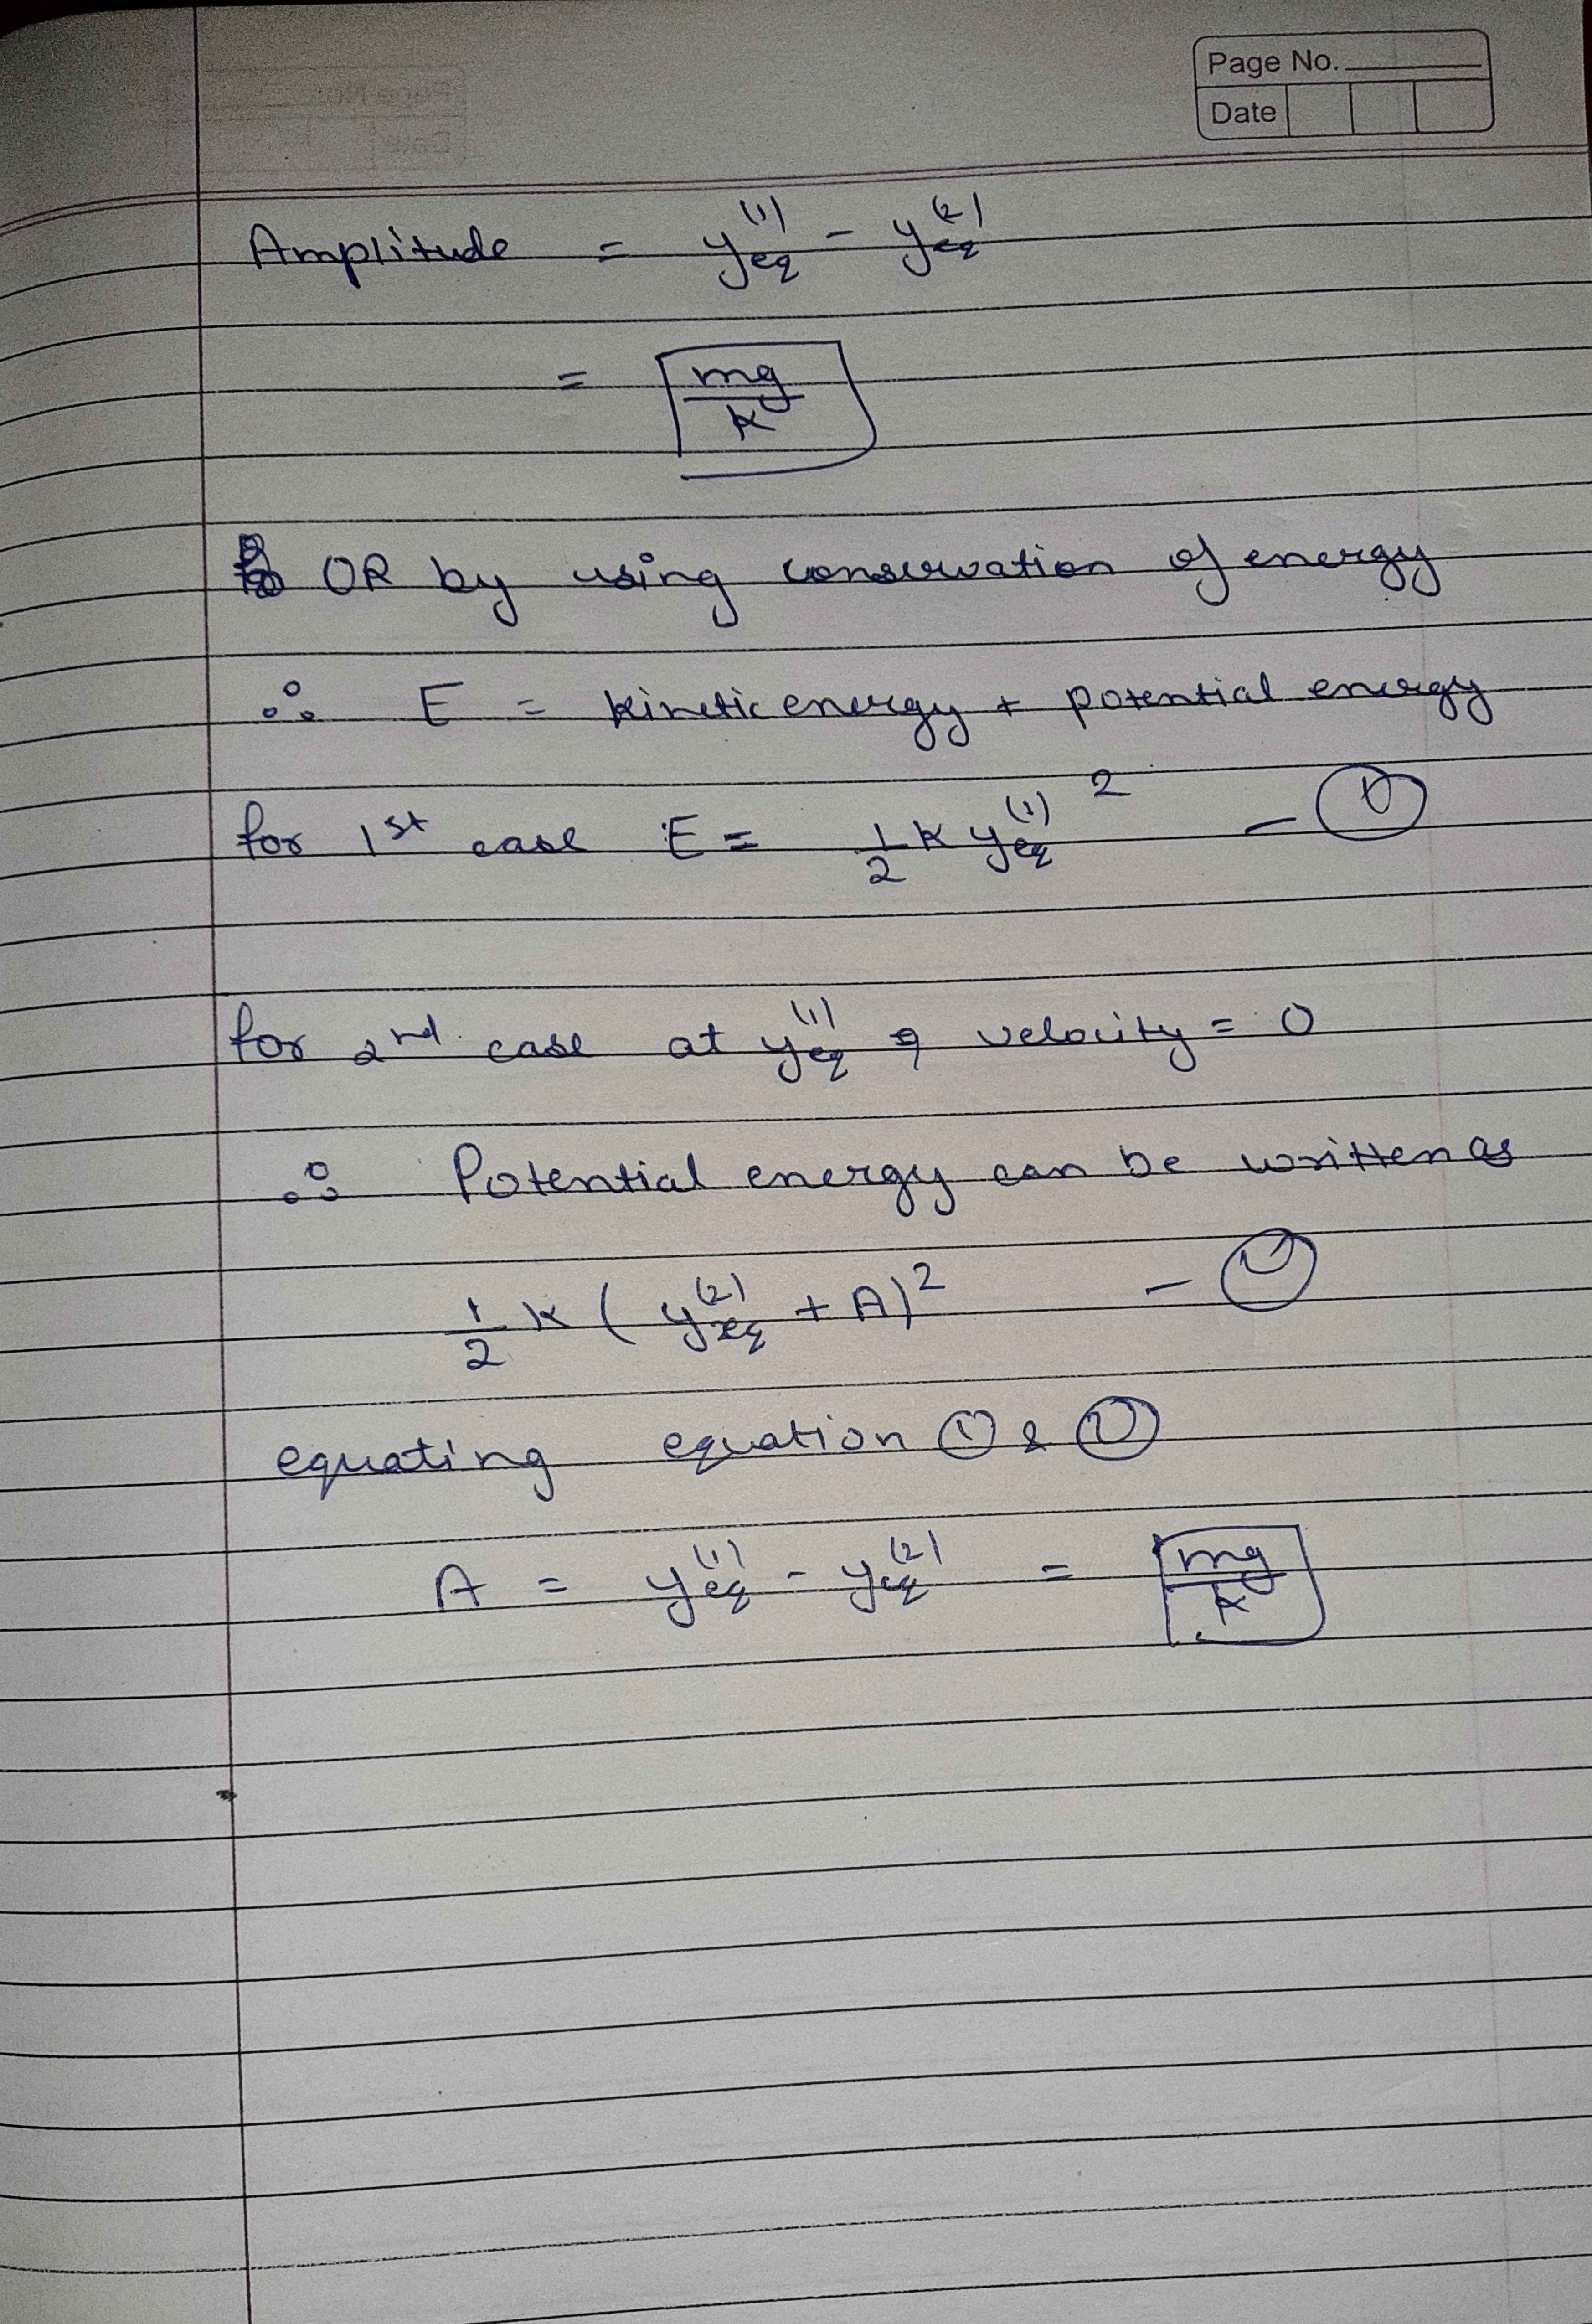 Page No.
Date
Amplitude = y_eq^(1) - y_eq^(2)
= mg/k
OR by using conservation of energy
∴ E = kinetic energy + potential energy
for 1st case E = 1/2 k y_eq^(1) 2 - ①
for 2nd case at y_eq^(1), velocity = 0
∴ Potential energy can be written as
1/2 k ( y_eq^(2) + A)^2 - ②
equating equation ① & ②
A = y_eq^(1) - y_eq^(2) = mg/k